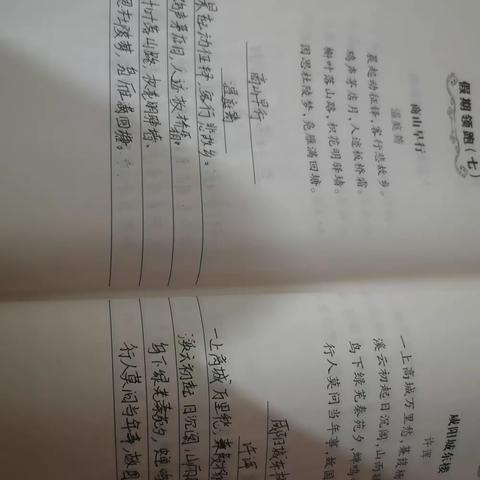 假期领跑(七)
商山早行
温庭筠
晨起动征铎,客行悲故乡。
鸡声茅店月,人迹板桥霜。
槲叶落山路,枳花明驿墙。
因思杜陵梦,凫雁满回塘。
商山早行
温庭筠
起动征铎,客行悲故乡。
声茅店月,人迹板桥霜。
叶落山路,枳花明驿墙。
思杜陵梦,凫雁满回塘。
咸阳城东楼
许浑
一上高城万里愁,蒹葭杨
溪云初起日沉阁,山雨欲
鸟下绿芜秦苑夕,蝉鸣
行人莫问当年事,故国
咸阳城东楼
许浑
一上高城万里愁,
溪云初起日沉阁,山雨
鸟下绿芜秦苑夕,蝉鸣
行人莫问当年事,故国